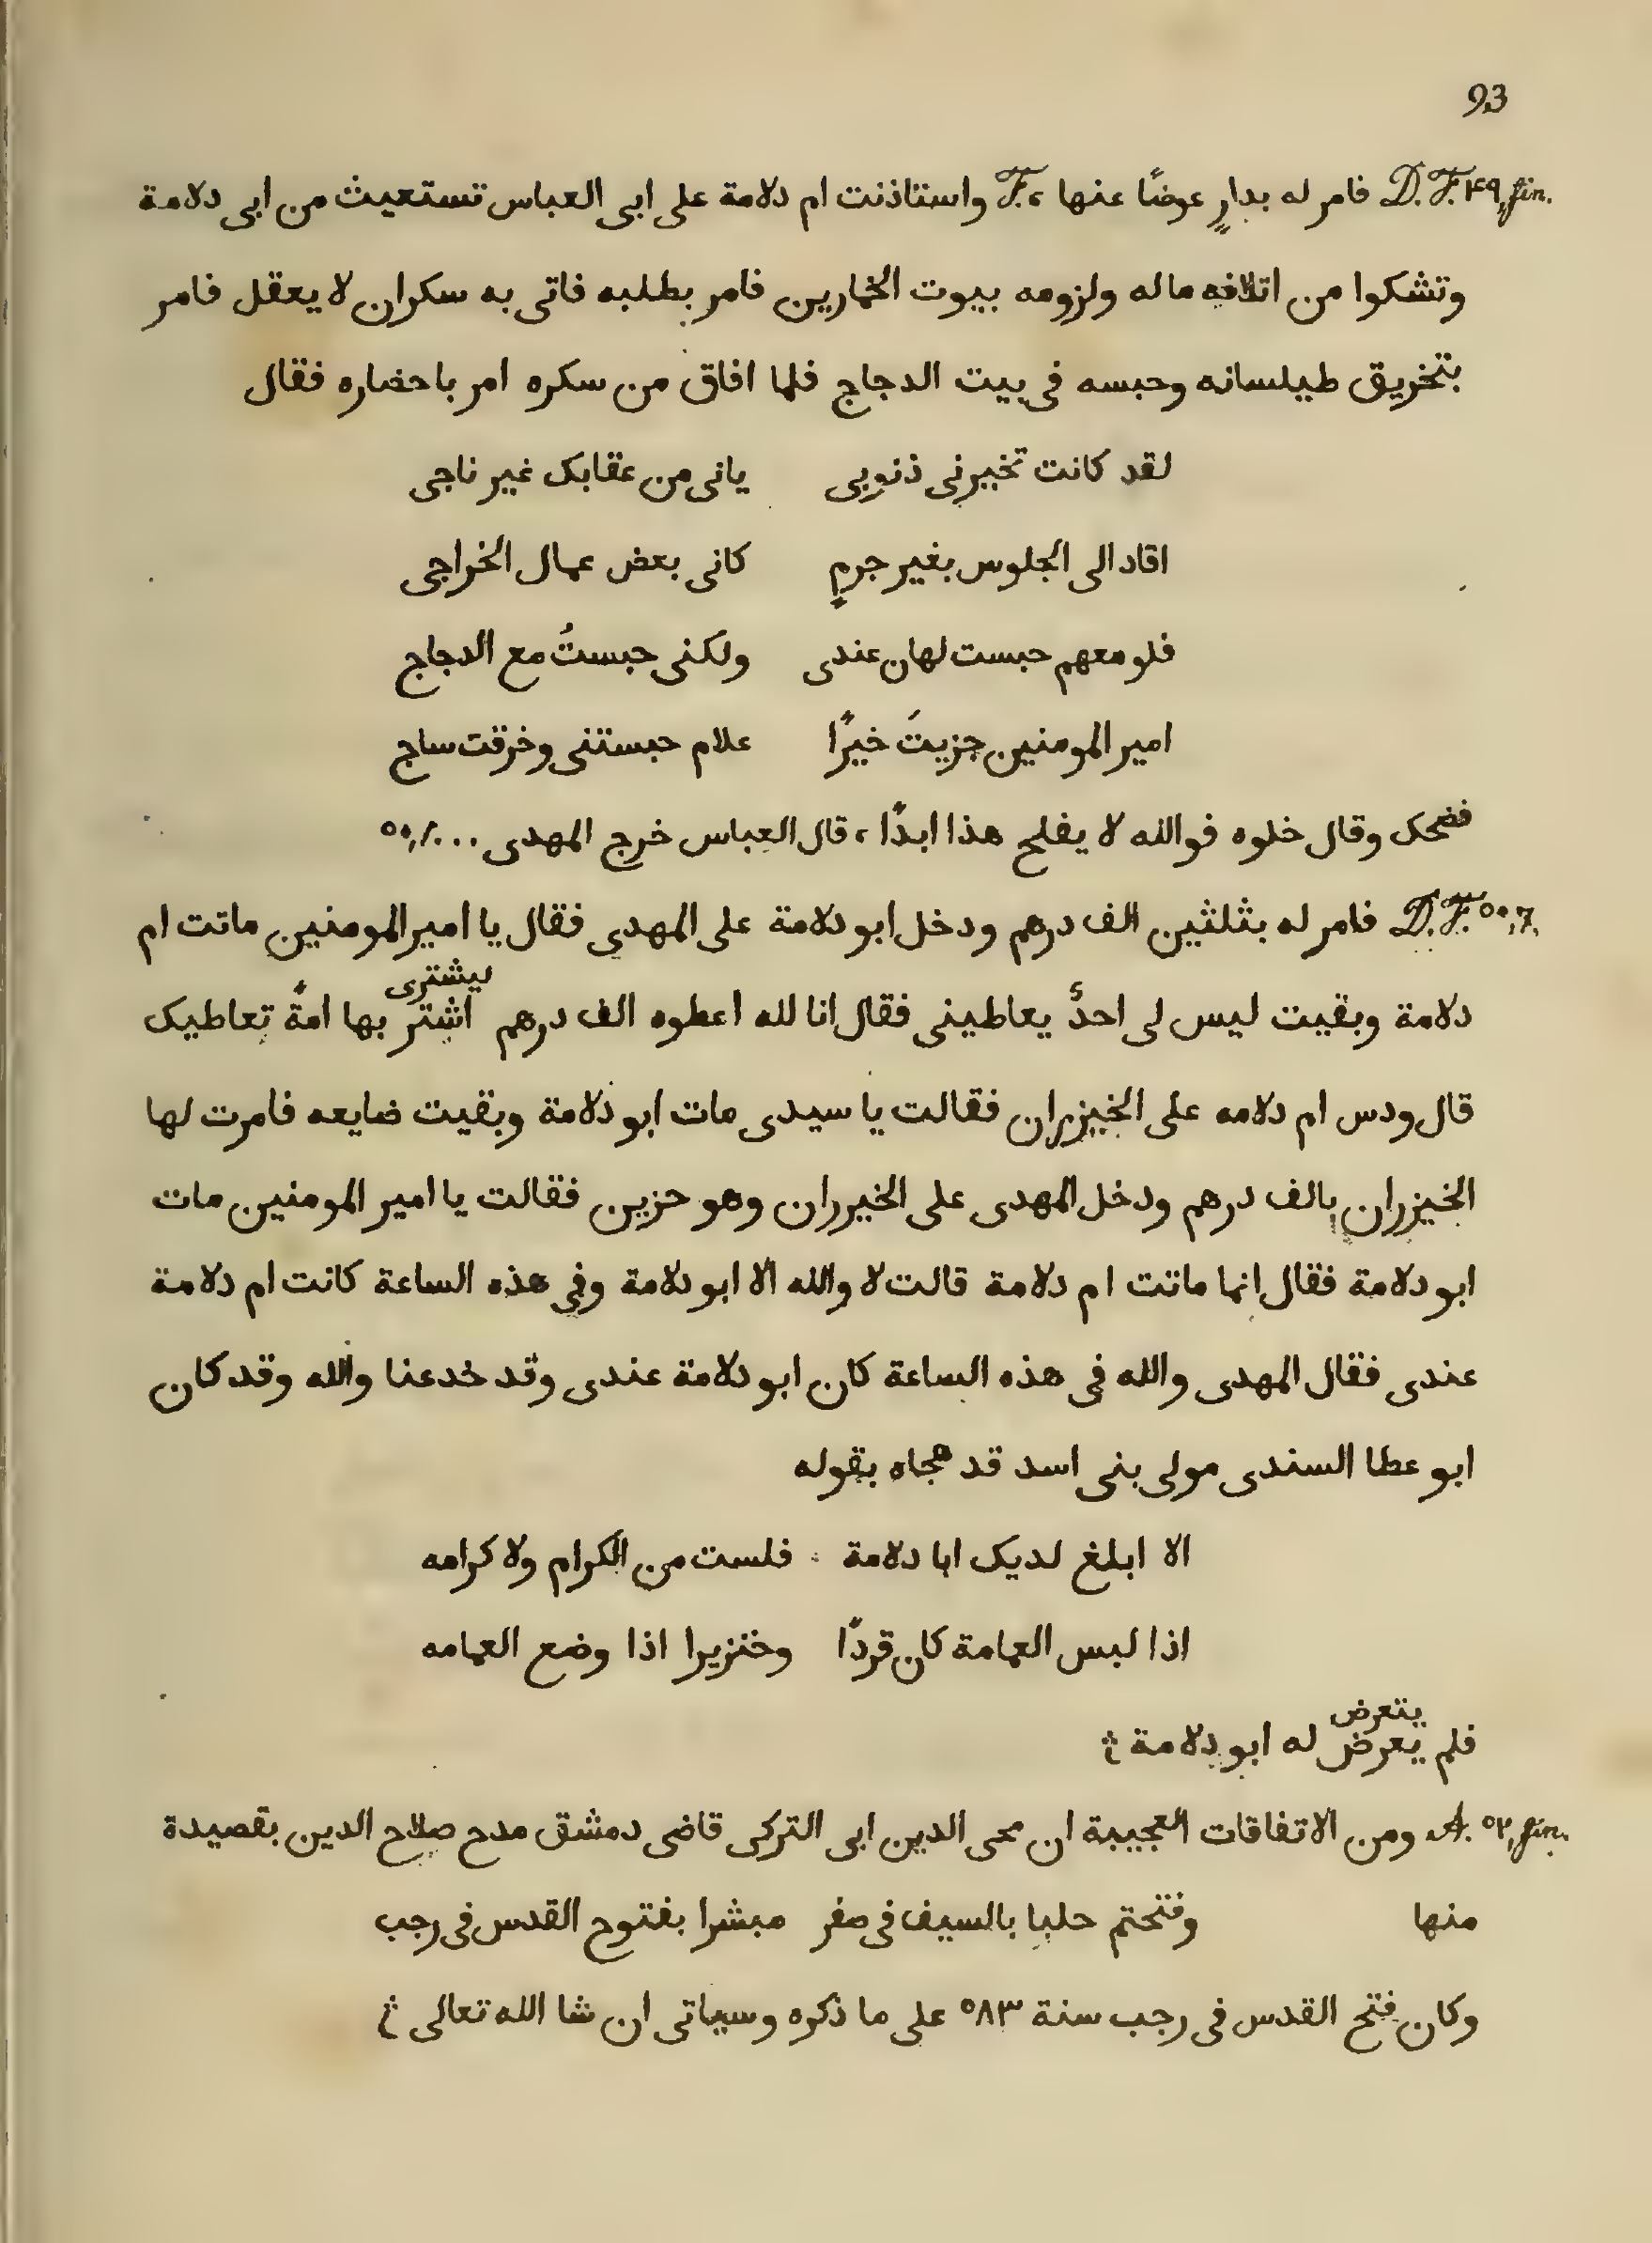 93
D. F. ۴۹, fin. فامر له بدارٍ عوضًا عنها، F. واستاذنت ام دلامة على ابى العباس تستعيث من ابى دلامة
وتشكوا من اتلافه ماله ولزومه بيوت الخمارين فامر بطلبه فاتى به سكران لا يعقل فامر
بتخريق طيلسانه وحبسه فى بيت الدجاج فلما افاق من سكره امر باحضاره فقال
لقد كانت تخيبرنى ذنوبى يانى من عقابك غير ناجى
اقاد الى الجلوس بغير جرمٍ كانى بعض عمال الخراجى
فلو معهم حبست لهان عندى ولكنى حبستُ مع الدجاج
امير المومنين جزيتَ خيرًا علام حبستنى وخرقت ساج
فضحك وقال خلوه فوالله لا يفلح هذا ابدًا، قال العباس خرج المهدى ...
D. F. ۵۰, 7. فامر له بثلثين الف درهم ودخل ابو دلامة على المهدى فقال يا امير المومنين ماتت ام
ليشترى
دلامة وبقيت ليس لى احدٌ يعاطينى فقال انا لله اعطوه الف درهم اشتر بها امةً تعاطيك
قال ودس ام دلامه على الخيزران فقالت يا سيدى مات ابو دلامة وبقيت ضايعه فامرت لها
الخيزران بالف درهم ودخل المهدى على الخيرران وهو حزين فقالت يا امير المومنين مات
ابو دلامة فقال انما ماتت ام دلامة قالت لا والله الا ابو دلامة وفى هذه الساعة كانت ام دلامة
عندى فقال المهدى والله فى هذه الساعة كان ابو دلامة عندى وقد خدعنا والله وقد كان
ابو عطا السندى مولى بنى اسد قد هجاه بقوله
الا ابلغ لديك ابا دلامة فلست من الكرام ولا كرامه
اذا لبس العمامة كان قردًا وخنزيرا اذا وضع العمامه
يتعرض
فلم يعرض له ابو دلامة
A. ۵۲, fin. ومن الاتفاقات العجيبة ان محى الدين ابى التركى قاضى دمشق مدح صلاح الدين بقصيدة
منها وفتحتم حلبا بالسيف فى صفر مبشرا بفتوح القدس فى رجب
وكان فتح القدس فى رجب سنة ۵۸۳ على ما ذكره وسياتى ان شا الله تعالى